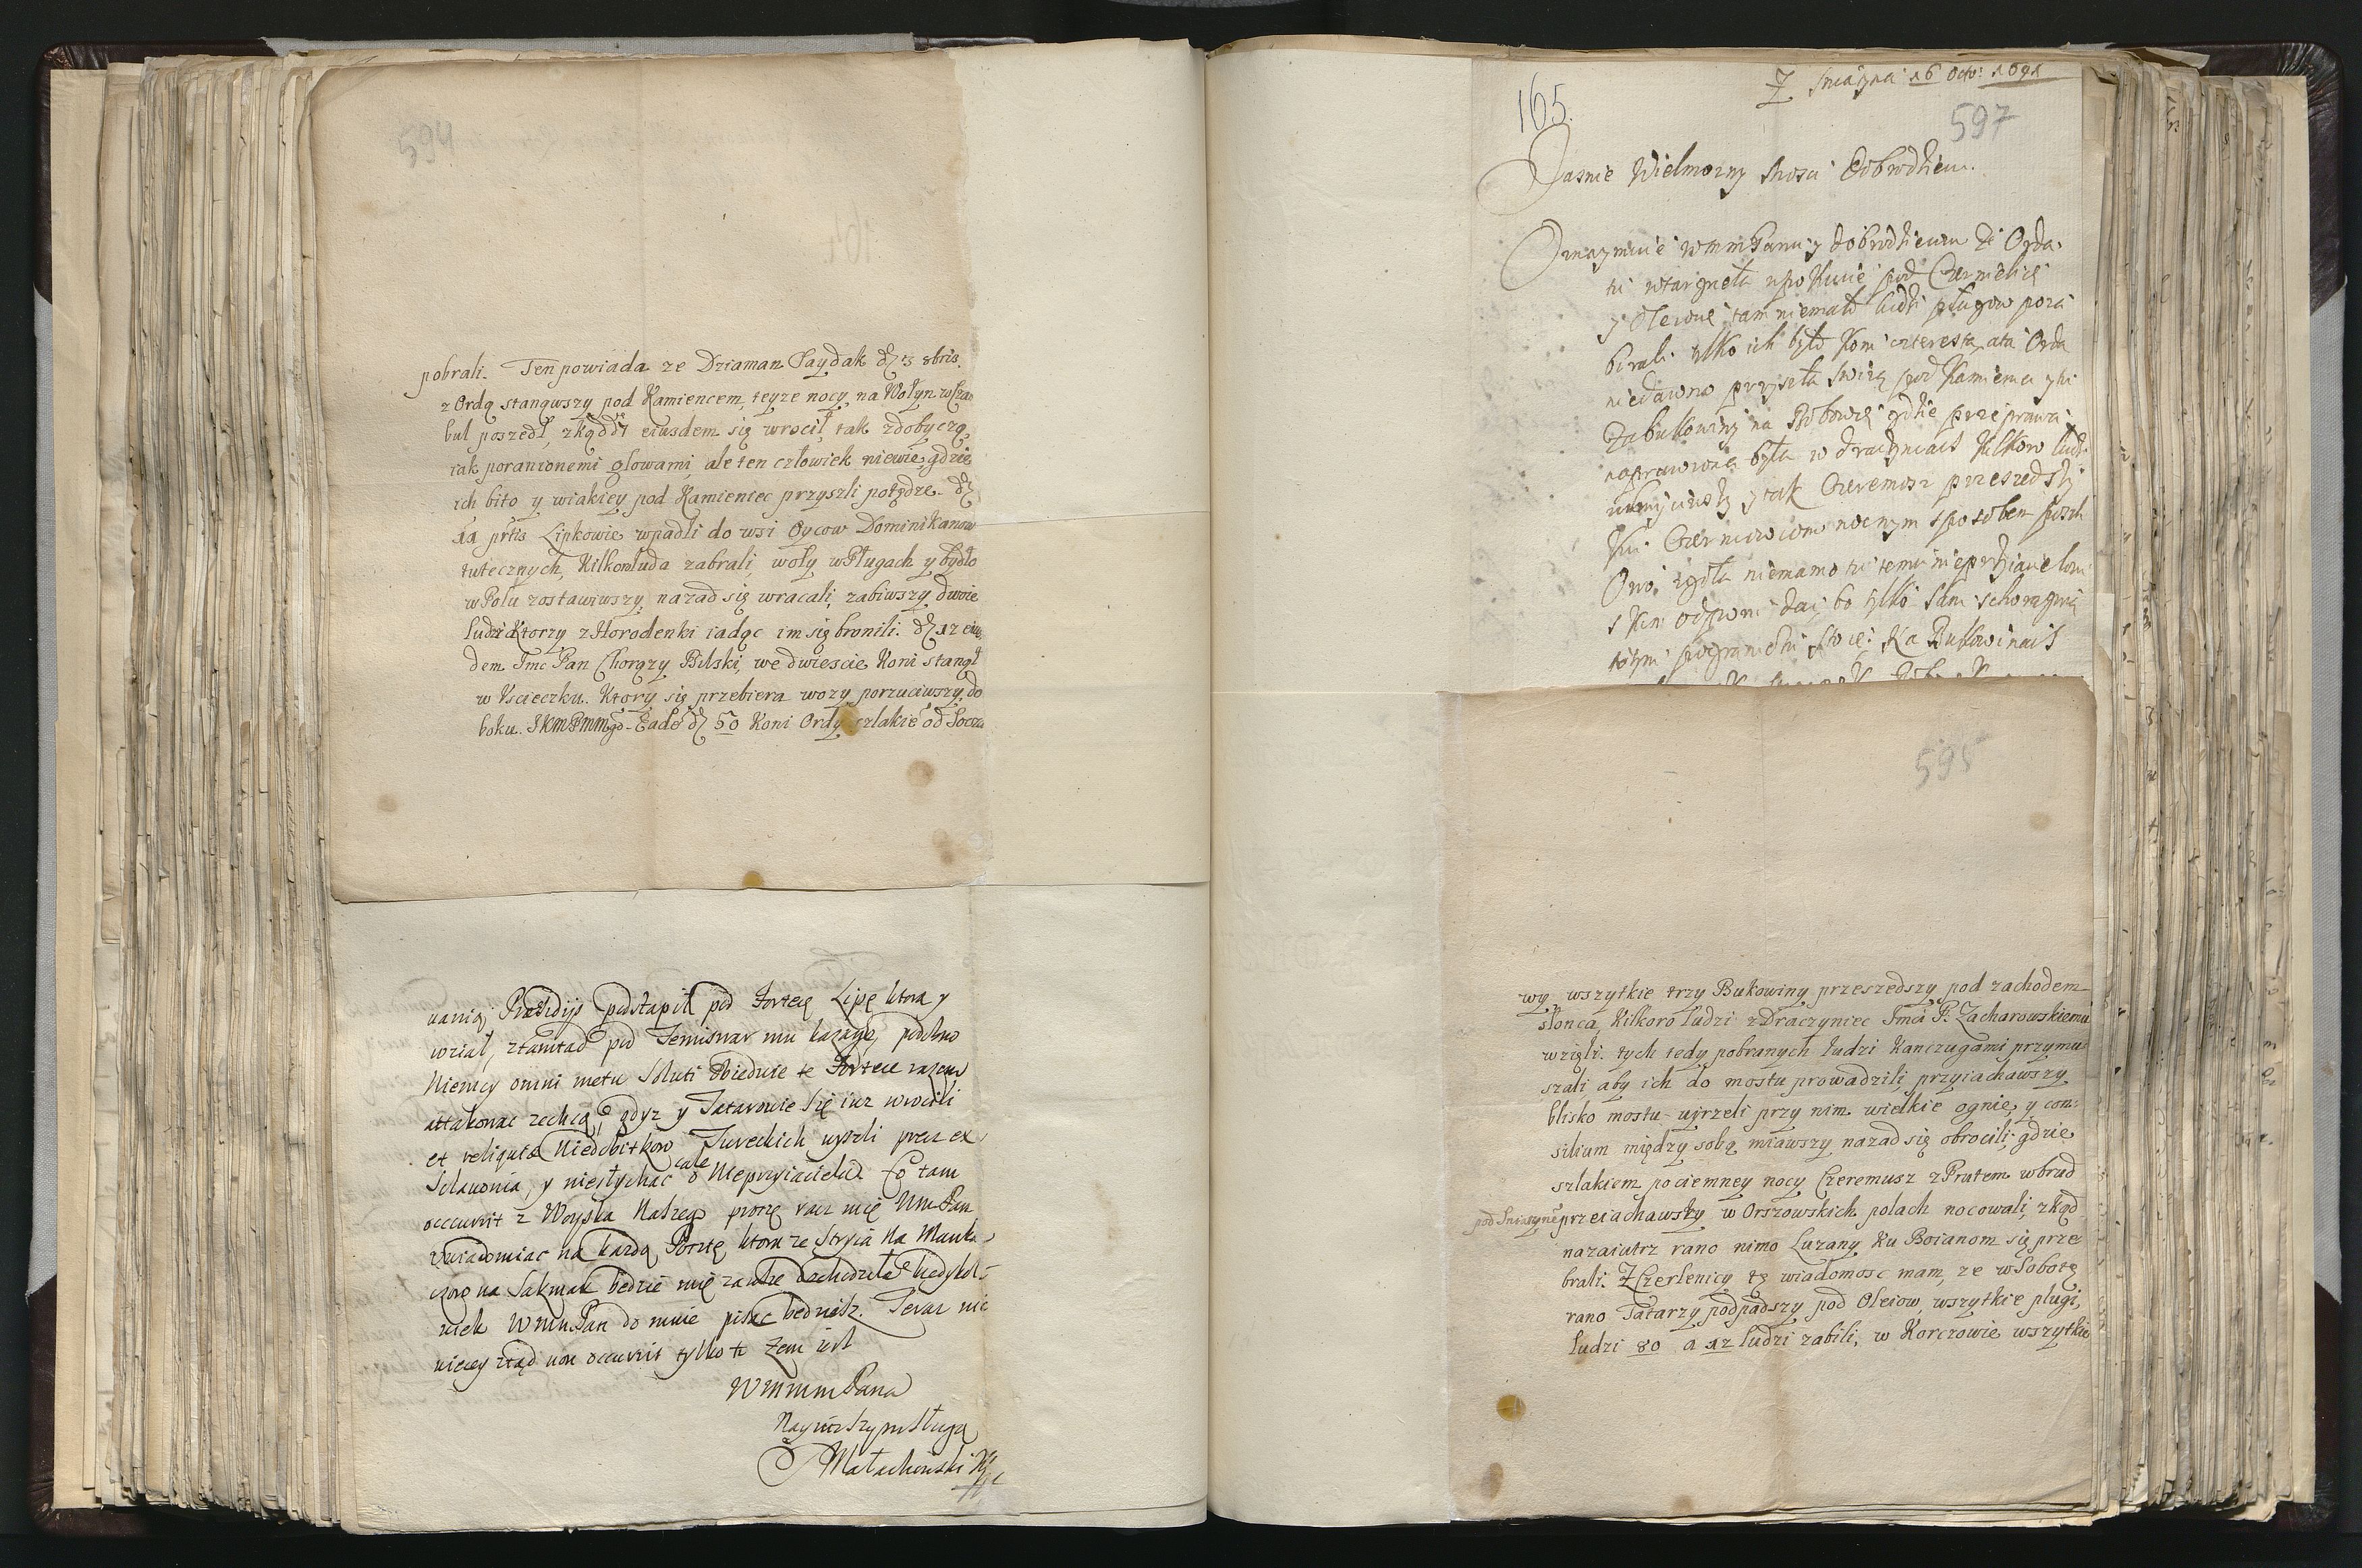 594
pobrali. Ten powiada ze Dziaman Saydak d. 3 8bris
z Ordą stanąwszy pod Kamiencem, teyze nocy na Wołyn w Czam
buł poszedł, zkąd 7 eiusdem się wrocił, tak zdobyczą,
iak poranionemi głowami, ale ten człowiek niewie, gdzie
ich bito y wiakiey pod Kamieniec przyszli potędze. d.
Lipkowie wpadli do wsi Oycow Dominikanow
tutecznych, Kilkoro luda zabrali, woły w Pługach y bydło
w Polu zostawiwszy, nazad się wracali, zabiwszy dwoie
ludzi Ktorzy z Horodenki iadąc im się bronili. d. 12 eius
dem Imc Pan Chorązy Bilski, we dwiescie Koni stanął
w Uscieczku. Ktory się przebiera wozy porzuciwszy, do
boku. Eade d. 50 Koni Ordy szlakie od Socza
uanią Presidijs podstąpił pod Fortecę Lipę ktora y
wział, ztamtąd pod Temiswar mu kazano, podobno
Niemcy omni metu soluti obiedwie te Fortece razem
attakowac zechcą, gdyz y Tatarowie się iuz wrocili
et reliquiæ Niedobitkow Tureckich uszli przez ex
Sclavonia, y niesłychac cale o Nieprzyiacielu. Co tam
occurrit z Woyska Naszego proszę racz mię WmPan
uwiadomiac na kazdą Pocztę, ktora ze Stryia na Munka
czow na Sakmak bedzie mię zawsze dochodziła kiedykol=
wiek WmmPan do mnie pisac bedziesz. Teraz nic
wiecey ztąd non occurrit tylko te zem iest
WmmmPana
Nayniszszym sługą
Małachowski
165.
Z Sniatyna 16 Octo: 1691
597
Jasnie Wielmozny Mosci Dobrodzieiu.
Oznaymuie WmmPanu y dobrodzieiowi ze Orda
tu wtargneła npo Kucie pod Czernielicę
y Oleiowę tam niemało ludzi pługow poza
birali tylko ich było Koni czterysta, ata Orda
niedawno przyszła swieza pod Kamienca y tu
Zabukowiny na Bobowę gdzie przeprawa
naprawiona była w draczyncach Kilkoro ludzi
y tak Czeremosz przeszedszy
Ku Czerniowcom nocnym sposobem poszli
Owo zgoła niemamo tu temu nieprzyiacielowi
s kim odporu dac, bo tylko sam schorągwią
Na Bukowinach
595
wy wszytkie trzy Bukowiny przeszedszy, pod zachodem
słonca, Kilkoro ludzi z Draczyniec Imci P. Zacharowskiemu
wzięli. tych tedy pobranych ludzi Kanczugami przymu
szali aby ich do mostu prowadzili, przyiachawszy
blisko mostu ujrzeli przy nim wielkie ognie, y con=
silium między sobą miawszy nazad się obrocili; gdzie
szlakiem po ciemney nocy Czeremusz z Prutem wbrud
pod Sniatyne przeiachawszy w Orszowskich polach nocowali, zkąd
nazaiutrz rano nimo Luzany Ku Boianom się prze
brali. Z Czerlenicy tę wiadomosc mam, ze w Sobotę
rano Tatarzy podpadszy pod Oleiow, wszytkie pługi,
ludzi 80 a 12 ludzi zabili, w Korczowie wszytkie